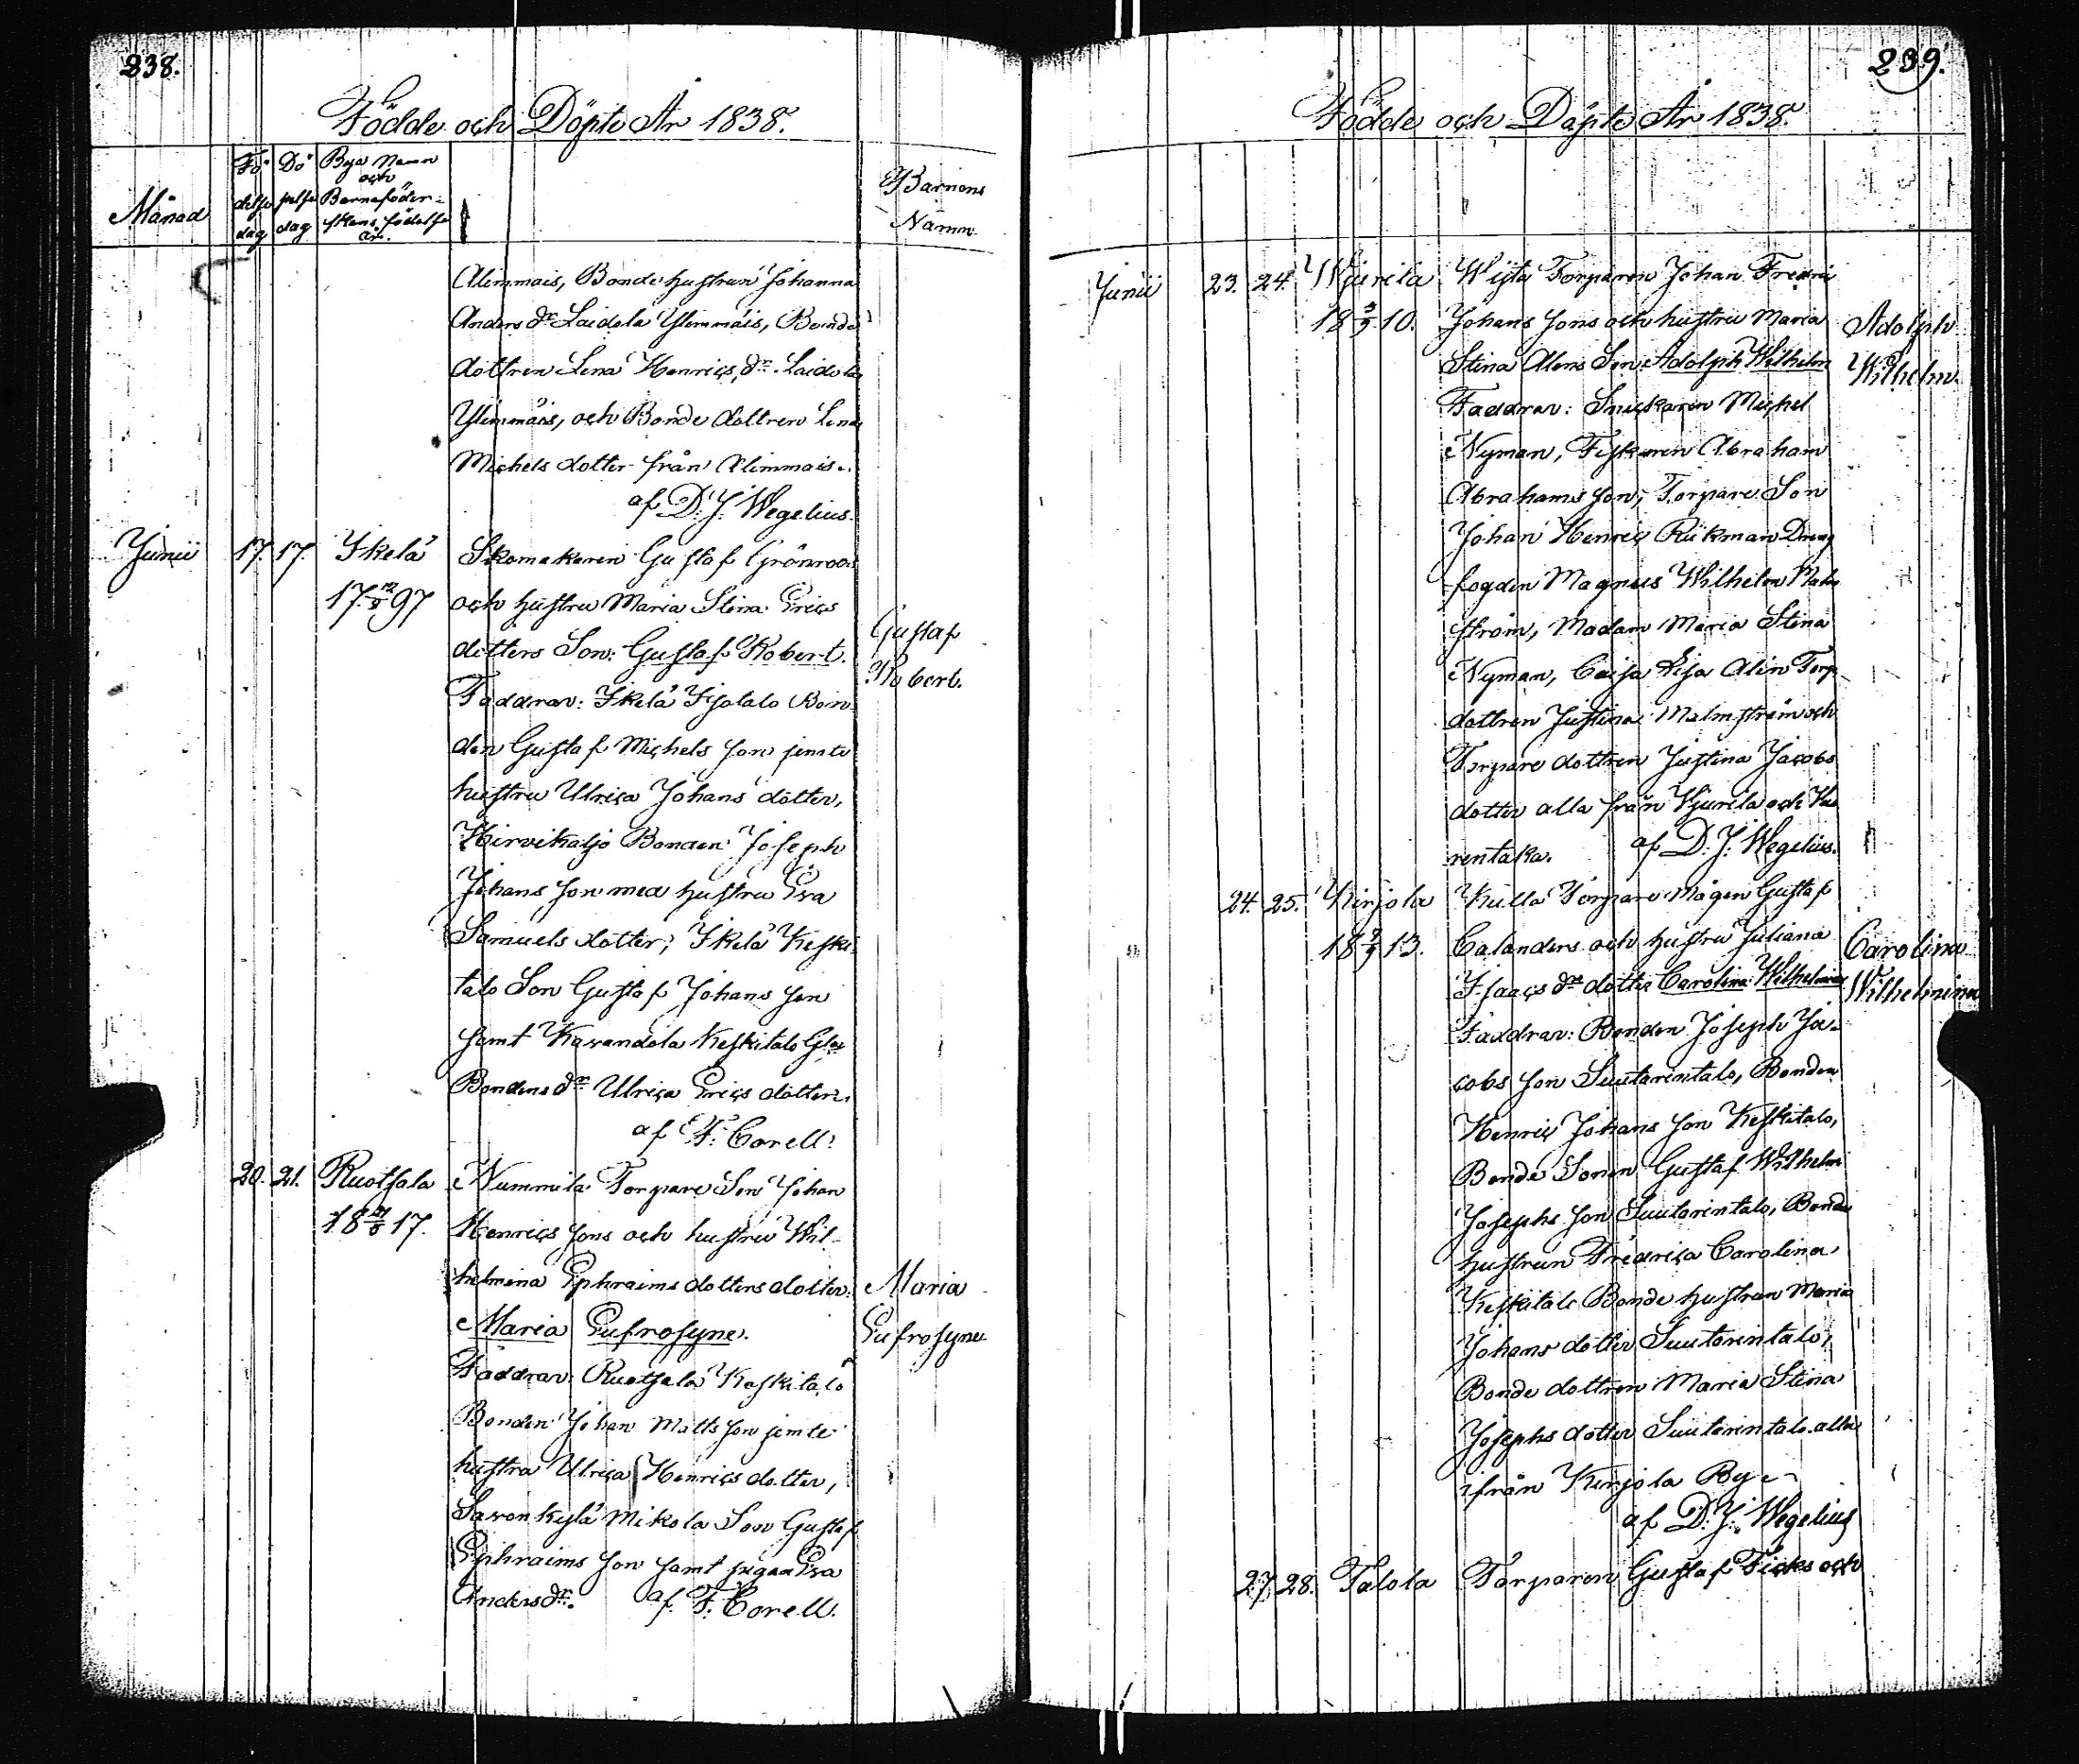 238.
Födde och Döpte År 1838.
Månad
Fö
delse
dag
Dö
pelse
dag
Bya Namn
och
Barnaföder-
skans födelse
år.
Barnens
Namn
Alimmais, Bonde hustrun Johanna
Anders dr Laidola Ylimmäis, Bonde
dottren Lena Henrics dr Laidola
Ylimmäis, och Bonde dottren Lena
Michels dotter från Alimmais.
af D. J. Wegelius.
Junii 17. 17. Ikelä Skomakaren Gustaf Grönroos
17 97 och hustru Maria Stina Erics
dotters Son: Gustaf Robert. Gustaf
Robert.
Faddrar: Ikelä Isotalo Bon-
den Gustaf Michels son jemte
hustru Ulrica Johans dotter,
Hirvikaljo Bonden Joseph
Johans son med hustru Eva
Samuels dotter; Ikelä Keski-
talo Son Gustaf Johans son
samt Karandola Keskitalo
Bondens dr Ulrica Erics dotter.
af F. Corell.
20. 21. Ruotsala Nummila Torpare Son Johan
18 17. Henrics sons och hustru Wil-
helmina Ephraims dotters dotter: Maria
Maria Eufrosyne. Eufrosyne
Faddrar: Ruotsala Keskitalo
Bonden Johan Matts son jemte
hustru Ulrica Henrics dotter,
Savonkylä Mikola Son Gustaf
Ephraims son samt pigan Eva
Andersdr. af F. Corell.
239.
Födde och Döpte År 1838.
Junii 23. 24. Wjurila Wista Torparen Johan Fredric
18 10. Johans sons och hustru Maria Adolph
Stina Alens Son Adolph Wilhelm Wilhelm.
Faddrar: Snickaren Michel
Nyman, Fiskaren Abraham
Abrahams son, Torpare Son
Johan Henric Rükman Dreng
fogden Magnus Wilhelm Malm
ström, Madam Maria Stina
Nyman, Caisa Lisa Alin Torp
dottren Justina Malmström och
Torpare dottren Justina Jacobs
dotter alla från Wjurila och
rentaka. af D. J. Wegelius.
24. 25. Kirjola Kulla Torpare Mågen Gustaf
18 13. Calanders och hustru Juliana Carolina
Isaacs drs dotter Carolina Wilhelmina Wilhelmina
Faddrar: Bonden Joseph Ja-
cobs son Suutarintalo, Bonden
Henric Johans son Keskitalo,
Bonde Sonen Gustaf Wilhelm
Josephs son Suutarintalo, Bonde
hustrun Fredrica Carolina
Keskitalo Bonde hustrun Maria
Johans dotter Suutarintalo,
Bonde dottren Maria Stina
Josephs dotter Suutarintalo alla
ifrån Kirjola By
af D. J. Wegelius
27. 28. Talola Torparen Gustaf Ficks och